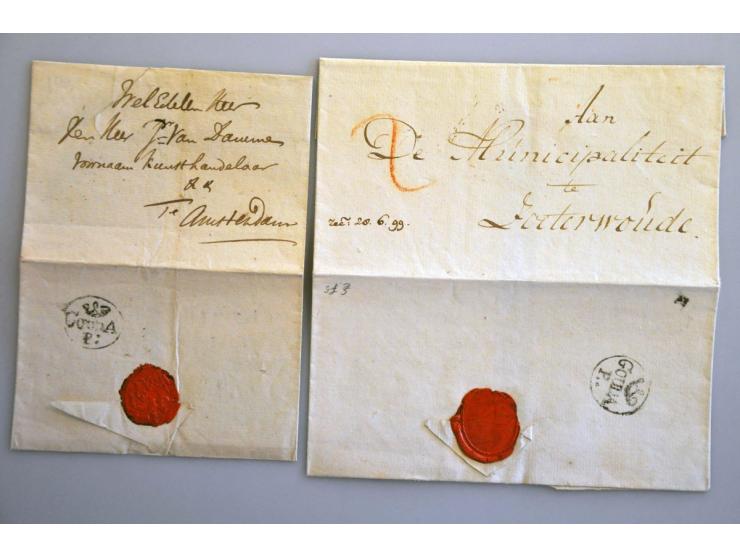 WelEdelen Heer
Den Heer Jn Van Dauemes
Voornaam Kunsthandelaar
&&
Te Amsterdam
GOUDA
P:
Aan
De Municipaliteit
te
Zoeterwoude.
2
rec: 28.6.99.
GOUDA
P: